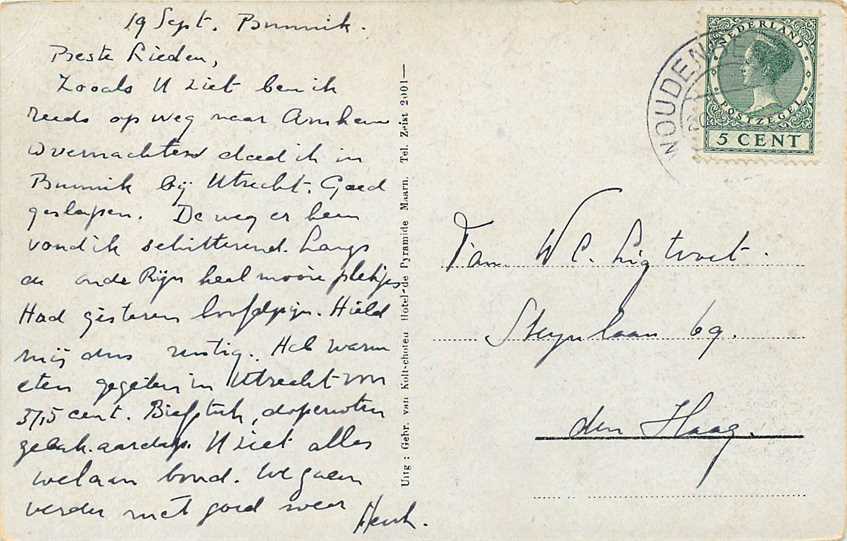 19 Sept. Bunnik.
Beste Lieden,
Zooals U ziet ben ik
reeds op weg naar Arnhem
Overnachten deed ik in
Bunnik bij Utrecht. Goed
geslapen. De weg er heen
vond ik schitterend. Langs
de oude Rijn heel mooie plekjes
Had gisteren hoofdpijn. Hield
mij dus rustig. Heb warm
eten gegeten in Utrecht von
37,5 cent. Biefstuk, doperwten
gebak. aardap. U ziet alles
welaan boud. We gaen
verder met goed weer Henk.
Uitg: Gebr. van Kolfschoten Hotel de Pyramide Maarn. Tel. Zeist 2001—
WOUDEN
NEDERLAND
POSTZEGEL
5 CENT
Fam W C. Ligtvoet.
Steynlaan 69.
den Haag.